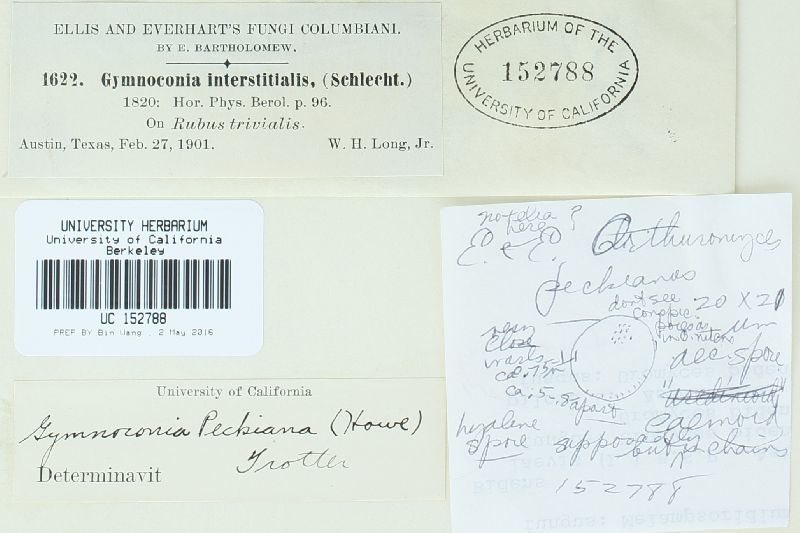 ELLIS AND EVERHART'S FUNGI COLUMBIANI.
BY E. BARTHOLOMEW.
1622. Gymnoconia interstitialis, (Schlecht.)
1820: Hor. Phys. Berol. p. 96.
On Rubus trivialis.
Austin, Texas, Feb. 27, 1901. W. H. Long, Jr.
HERBARIUM OF THE
152788
UNIVERSITY OF CALIFORNIA
UNIVERSITY HERBARIUM
University of California
Berkeley
UC 152788
PREP BY Bin Wang , 2 May 2016
University of California
Gymnoconia Peckiana (Howe)
Trotter
Determinavit
no telia ?
here
E. & E. Arthuromyces
peckianus
don't see
20 X 21
um
very
close
warts
aec. spore
ca. .5-.8 apart
caemoid
hyaline
spore supposedly
but in chains
152788